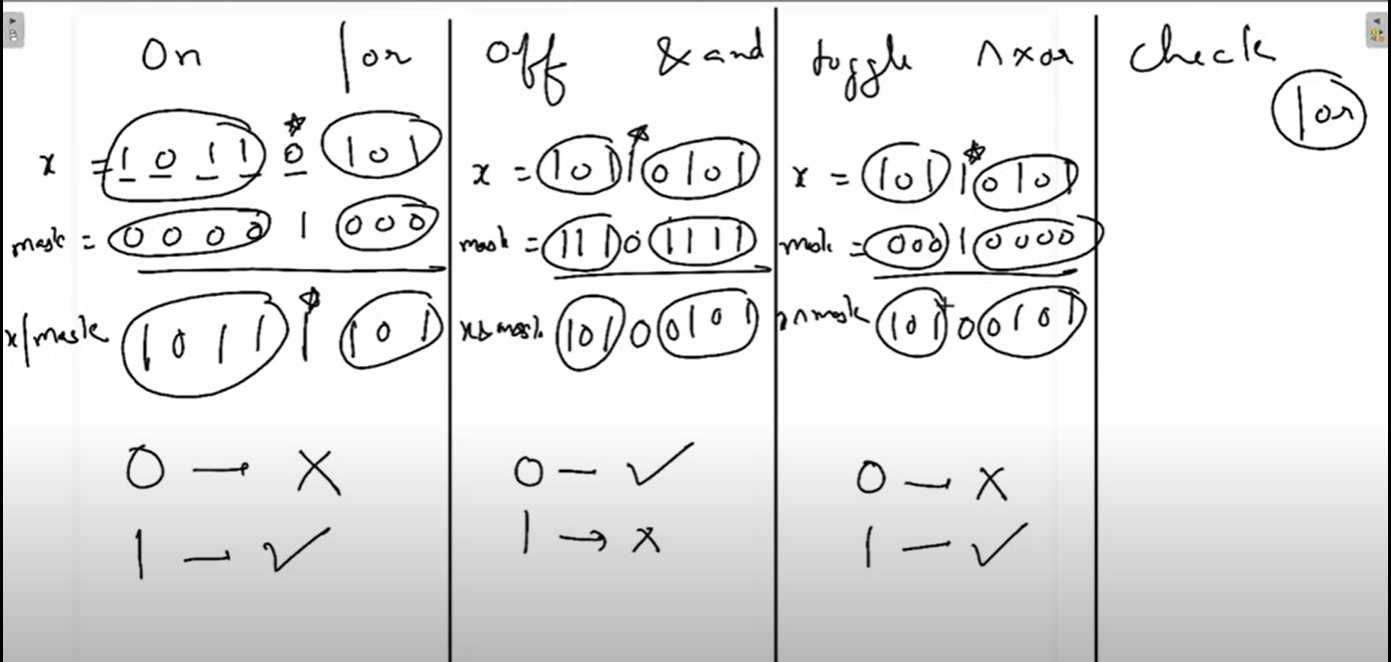 On | or
x = 1 0 1 1 0 1 0 1
mask = 0 0 0 0 1 0 0 0
x|mask 1 0 1 1 1 1 0 1
0 → x
1 – ✓
Off & and
x = 1 0 1 1 0 1 0 1
mask = 1 1 1 0 1 1 1 1
x & mask 1 0 1 0 0 1 0 1
0 – ✓
1 → x
toggle ^ xor
x = 1 0 1 1 0 1 0 1
mask = 0 0 0 1 0 0 0 0
x ^ mask 1 0 1 0 0 1 0 1
0 – x
1 – ✓
Check
| or